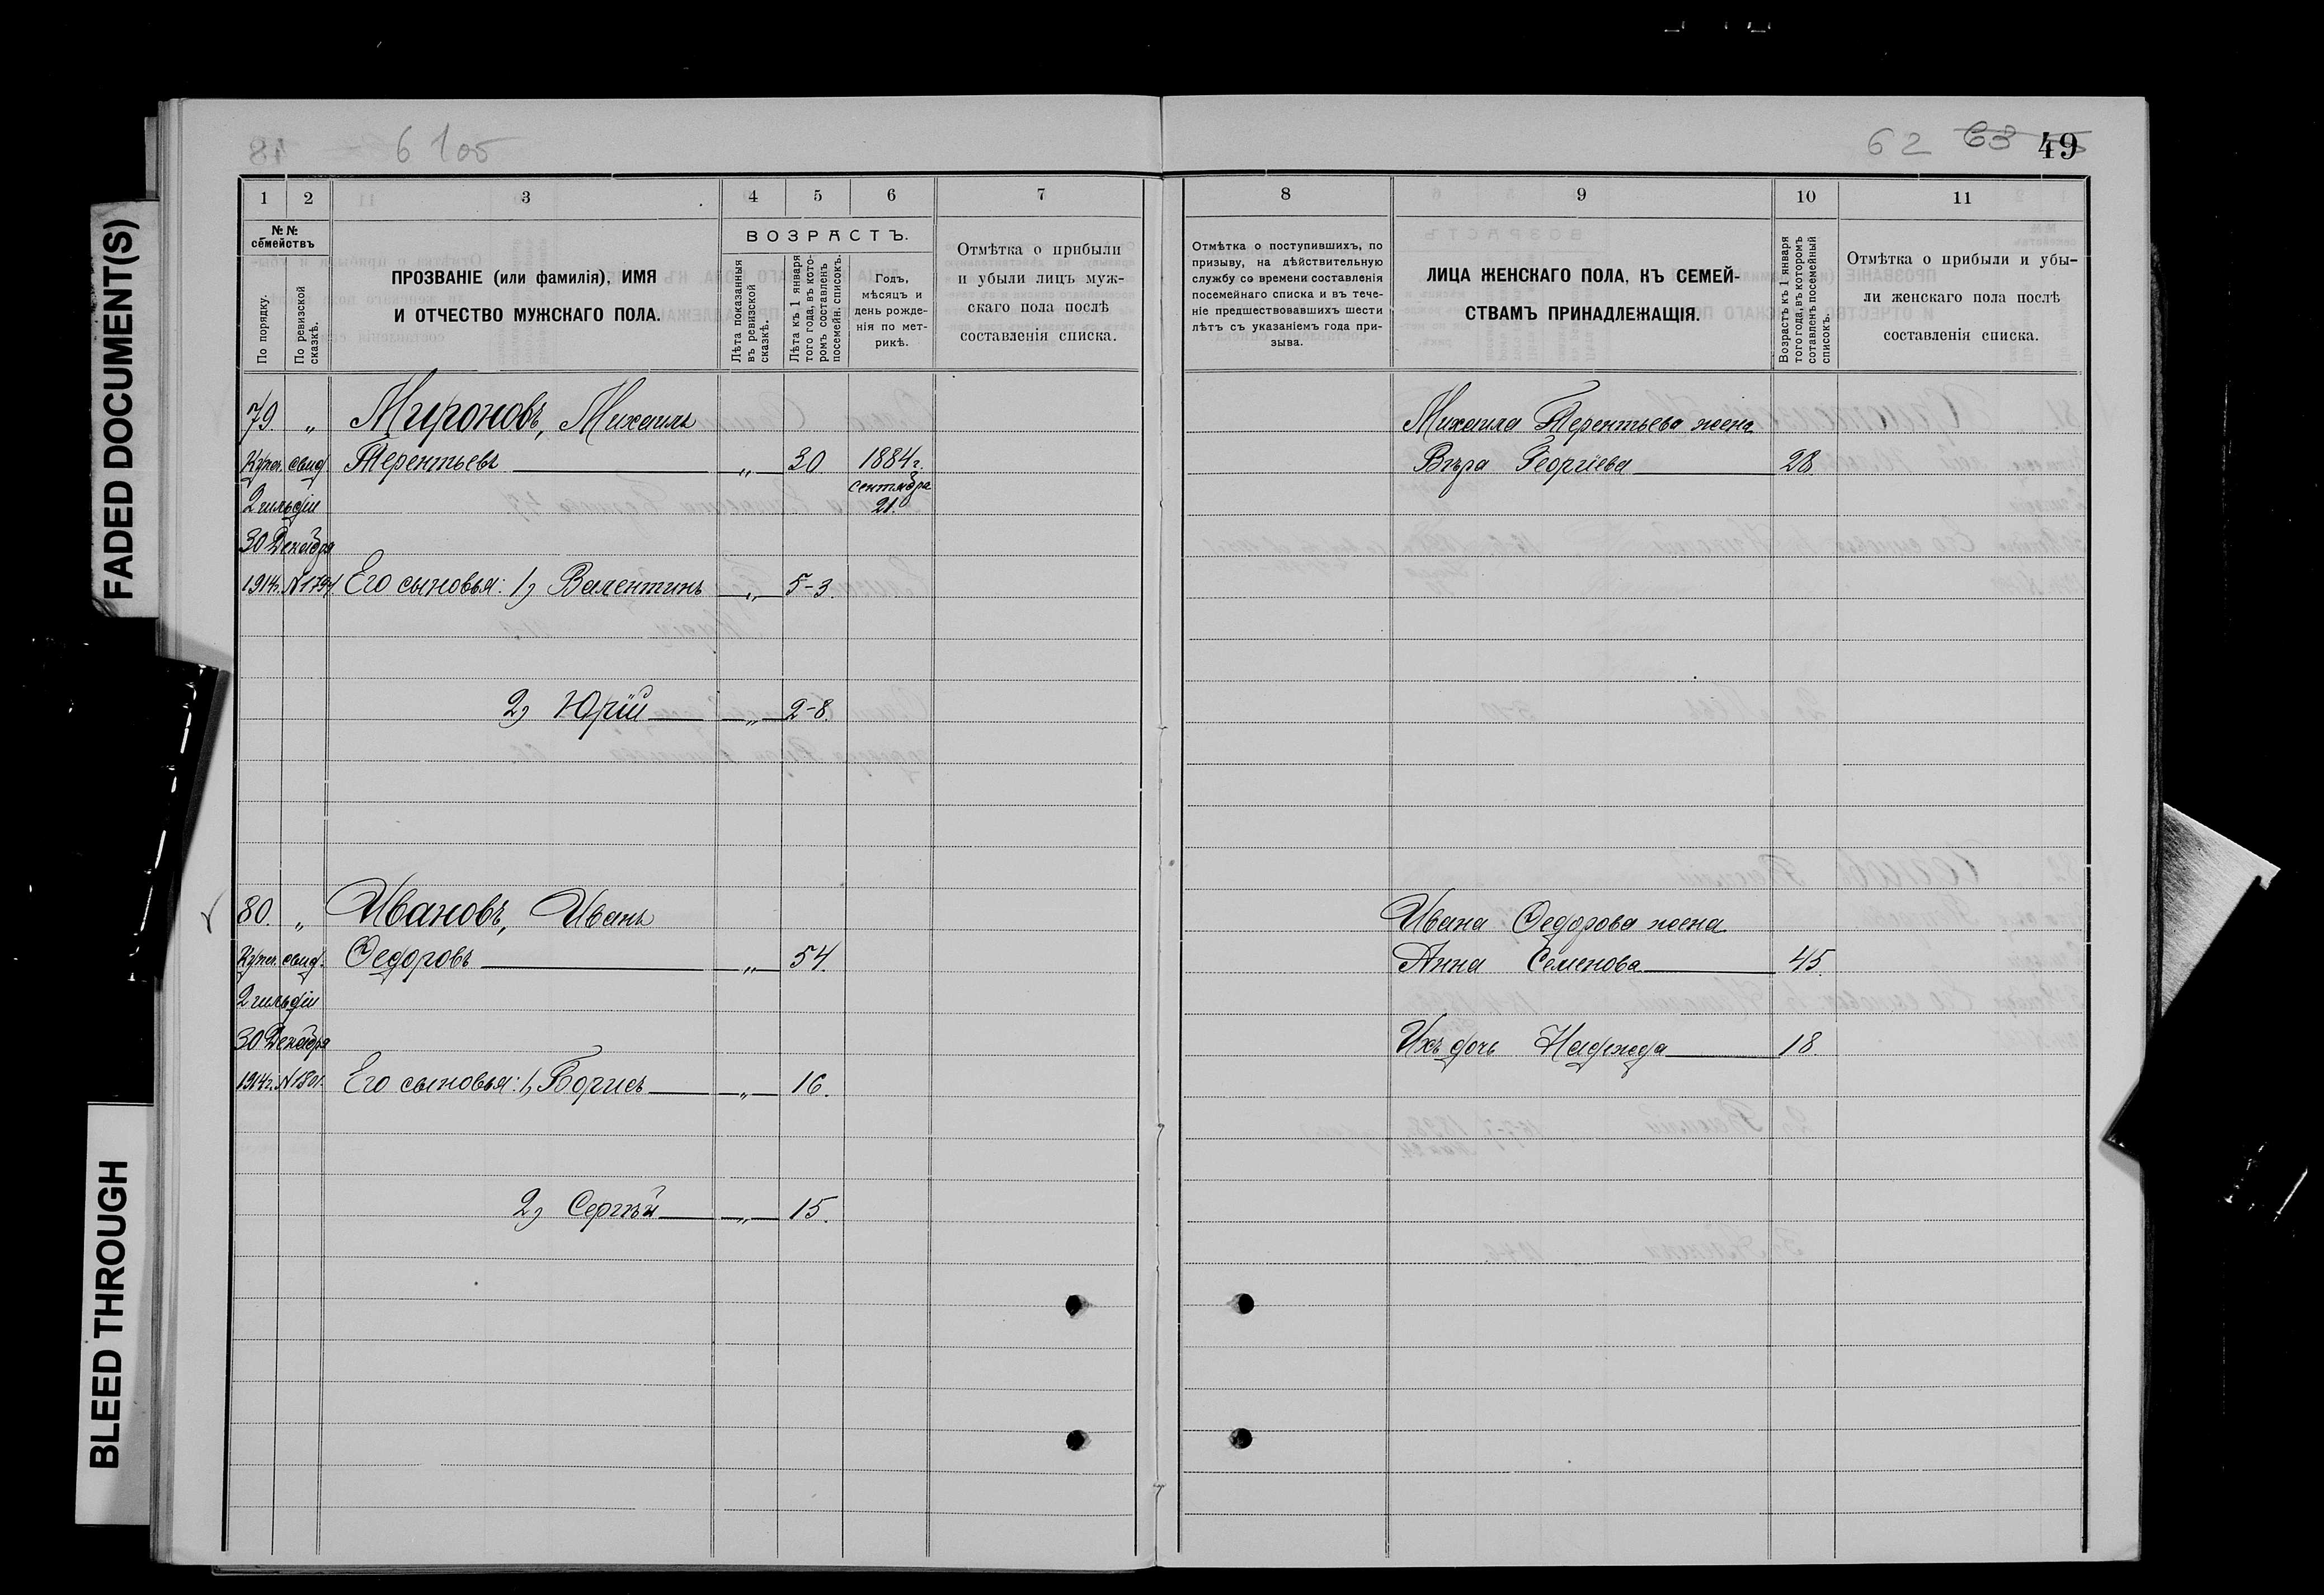 FADED DOCUMENT(S)
BLEED THROUGH
6 105
62 63 49
1 2 3 4 5 6 7
№ №
семействъ
По порядку.
По ревизской
сказкѣ.
ПРОЗВАНІЕ (или фамилія), ИМЯ
И ОТЧЕСТВО МУЖСКАГО ПОЛА.
ВОЗРАСТЪ.
Лѣта показанныя
въ ревизской
сказкѣ.
Лѣта къ 1 января
того года, въ кото-
ромъ составленъ
посемейн. списокъ.
Годъ,
мѣсяцъ и
день рожде-
нія по мет-
рикѣ.
Отмѣтка о прибыли
и убыли лицъ муж-
скаго пола послѣ
составленія списка.
79. „ Мироновъ, Михаилъ
Купеч. свид. Терентьевъ „ 30 1884 г.
сентября
2 гильдіи 21.
30 Декабря
1914 г. № Его сыновья: 1, Валентинъ „ 5-3.
2, Юрій „ 2-8.
80. „ Ивановъ, Иванъ
Купеч. свид. Ѳедоровъ „ 54.
2 гильдіи
30 Декабря
1914 г. № 1801. Его сыновья: 1, Борисъ „ 16.
2, Сергѣй „ 15.
8 9 10 11
Отмѣтка о поступившихъ, по
призыву, на дѣйствительную
службу со времени составленія
посемейнаго списка и въ тече-
ніе предшествовавшихъ шести
лѣтъ съ указаніемъ года при-
зыва.
ЛИЦА ЖЕНСКАГО ПОЛА, КЪ СЕМЕЙ-
СТВАМЪ ПРИНАДЛЕЖАЩІЯ.
Возрастъ къ 1 января
того года, въ которомъ
сотавленъ посемейный
списокъ.
Отмѣтка о прибыли и убы-
ли женскаго пола послѣ
составленія списка.
Михаила Терентьева жена
Вѣра Георгіева 28
Ивана Ѳедорова жена
Анна Семенова 45.
Ихъ дочь Надежда 18.